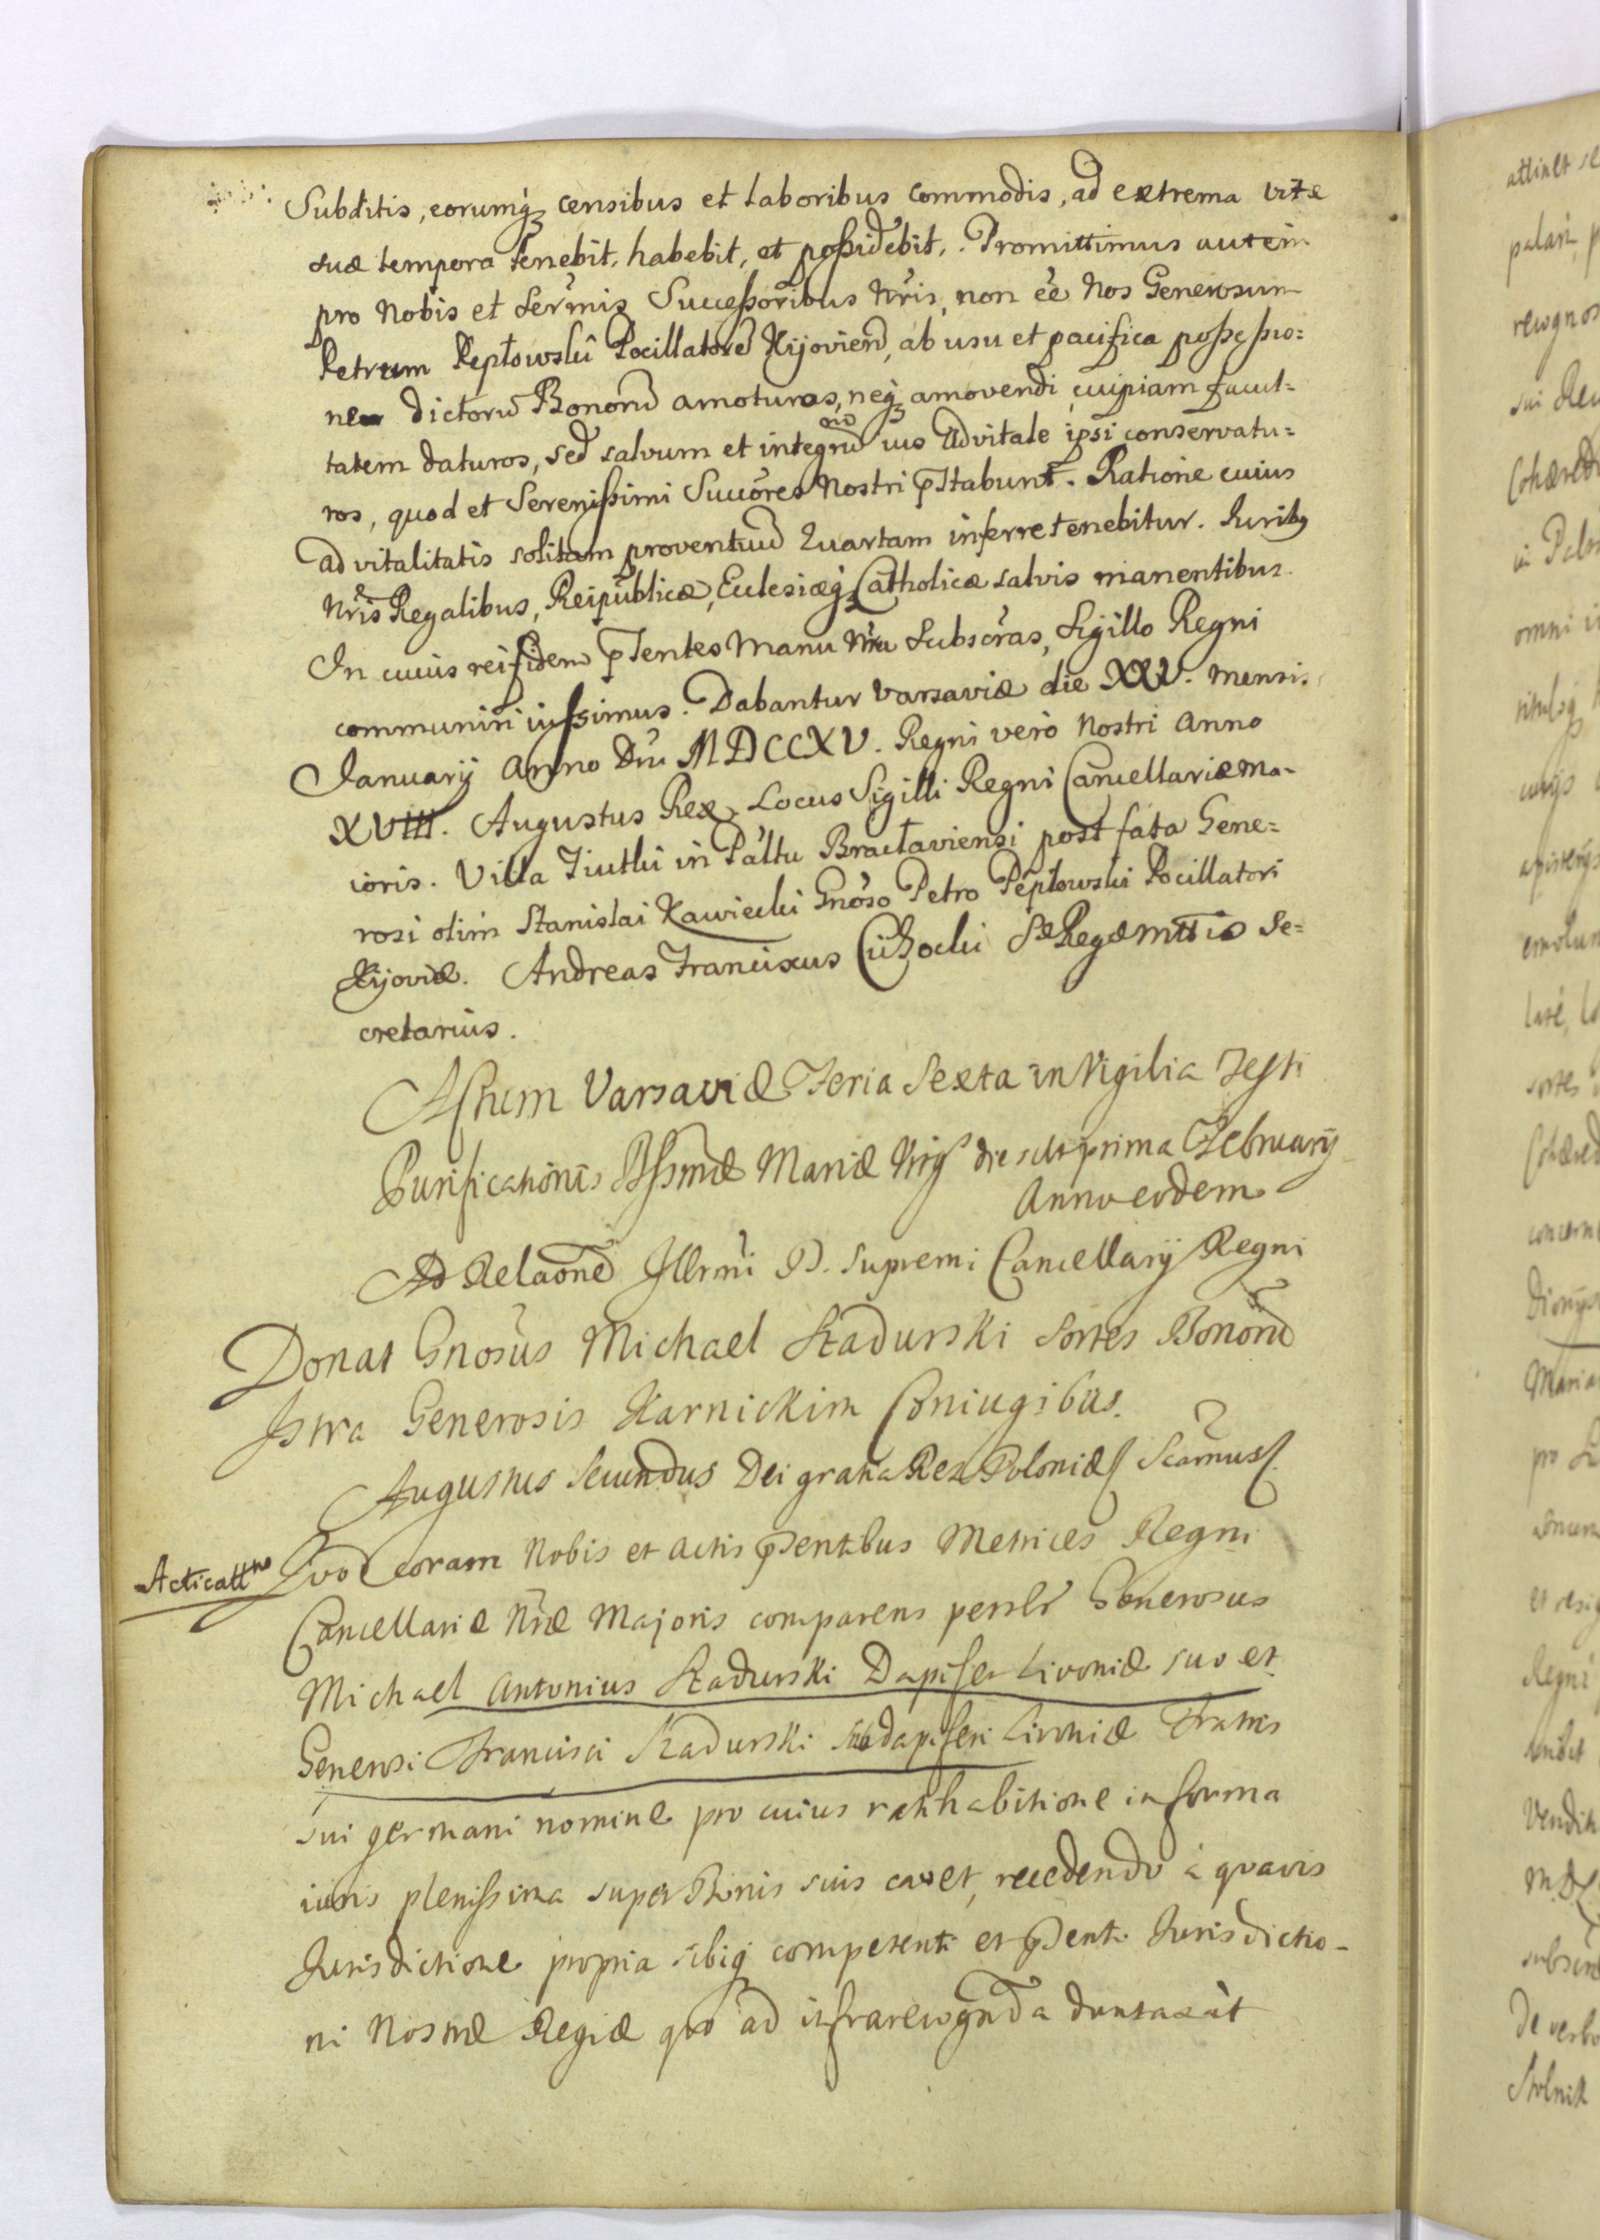 Subditis, eorumq; censibus et laboribus commodis, ad extrema vitæ
suæ tempora tenebit, habebit, et poßidebit. Promittimus autem
pro Nobis et Sermis Succeßoribus Nris, non ee Nos Generosum
Petrum Peptowski Pocillatore Kijovien, ab usu et pacifica poßeßio=
ne dictoru Bonoru amoturos, neq; amovendi cuipiam facul=
tatem daturos, sed salvum et integru ius Advitale ipsi conservatu=
ros, quod et Sereniſsimi Succores Nostri pstabunt. Ratione cuius
advitalitatis solitam proventuu Quartam inferre tenebitur. Iurib9
Nris Regalibus, Reipublicæ, Ecclesiæq; Catholicæ salvis manentibus.
In cuius rei fidem pntes Manu Nra Subscras, Sigillo Regni
communiri iuſsimus. Dabantur Varsaviæ die XXV. mensis
Ianuarij Anno Dni MDCCXV. Regni vero Nostri Anno
XVIII. Augustus Rex. Locus Sigilli Regni Cancellariæ Ma-
ioris. Villa Jiutki in Paltu Bracłaviensi post fata Gene=
rosi olim Stanislai Kawiecki Gnoso Petro Pepłowski Pocillatori
Kijoviæ. Andreas Franciscus Cichocki Sæ Regæ Mttis Se=
cretarius.
Actum Varsaviæ Feria Sexta in Vigilia Festi
Purificationis Bßmæ Mariæ Virgs die scilt prima Februarij
Anno eodem
Ad Relaone Illrmi D. Supremi Cancellarij Regni
Donat Gnosus Michael Szadurski Sortes Bonoru
Istra Generosis Karnickim Coniugibus.
Augustus Secundus Dei gratia Rex Poloniæ Scamus
Acticatt
Quod coram Nobis et Actis pntibus Metrices Regni
Cancellariæ Nræ Majoris comparens persolr Generosus
Michael Antonius Szadurski Dapifer Livoniæ suo et
Generosi Francisci Szadurski Subdapiferi Livoniæ Fratris
sui germani nomine pro cuius ratihabitione in forma
iuris pleniſsima super Bonis suis cavet, recedendo à quavis
Jurisdictione propria sibiq competenti et pnti Jurisdictio-
ni Nostræ Regiæ quo ad infrarecognda duntaxàt